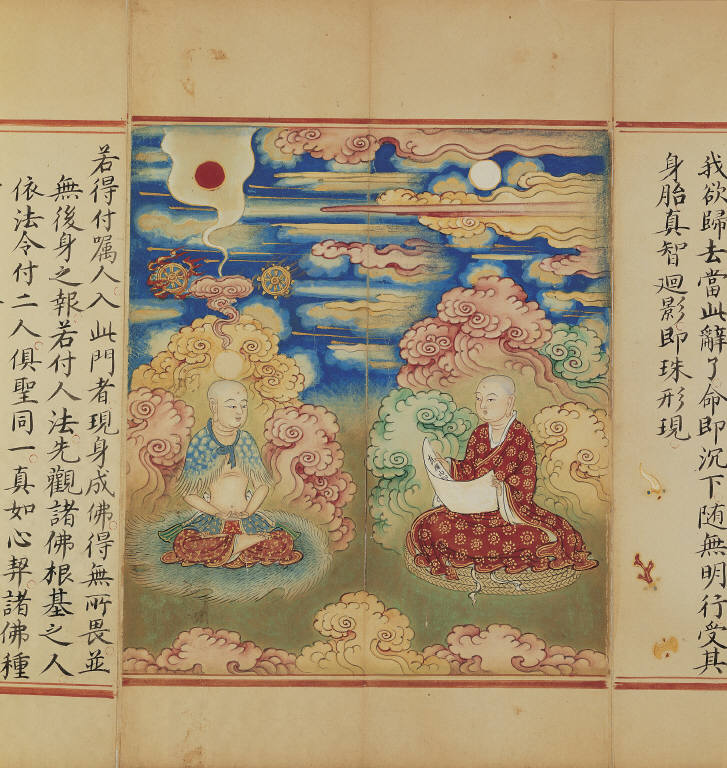 我欲歸去當此辭了命即沉下随無明行受其
身胎真智廻影即珠形現
若得付嘱人入此門者現身成佛得無所畏並
無後身之報若付人法先觀諸佛根基之人
依法令付二人俱聖同一真如心契諸佛種